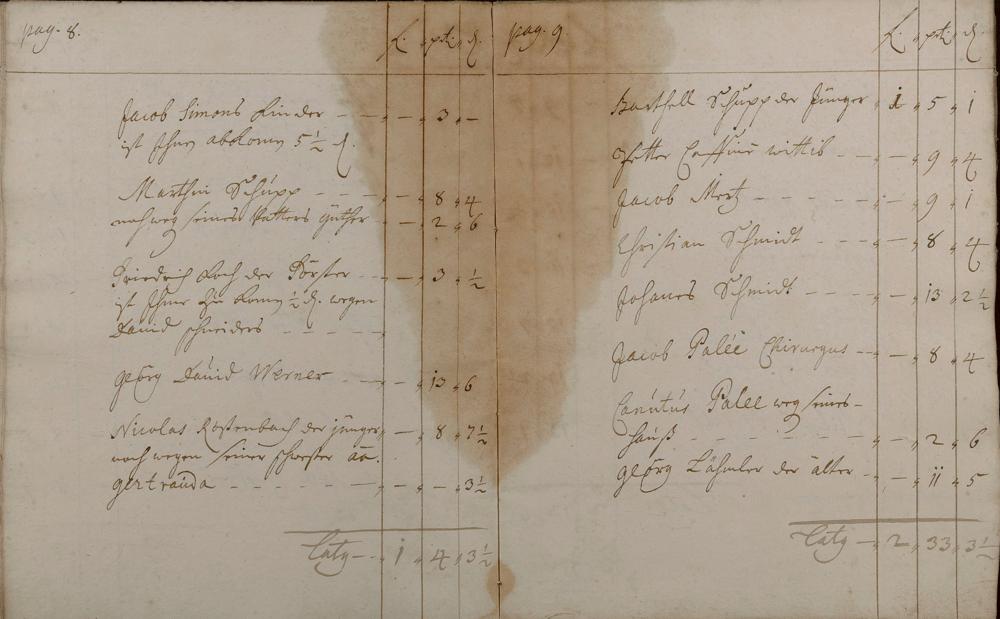 pag. 8.
f. ptz. d.
Jacob Simons Kinder - - - 3 -
ist Ihm abkomen 5 1/2 d.
Marthin Schupp - - - 8 4
noch weg seines Vatters güther - - 2 6
Friedrich Koch der Förster - - - 3 1/2
ist Ihme zu komen 1/2 d. wegen
David schneiders - - - -
Geörg David Werner - - - 13 6
Nicolas Rostenbach der jünger - 8 7 1/2
noch wegen seiner schwester
gertrauda - - - - - - - 3 1/2
Latg - - 1 4 3 1/2
pag. 9
f. ptz. d.
Barthell Schupp der Jünger 1 5 1
Petter wittib - - - 9 4
Jacob Mertz - - - - - 9 1
Christian Schmidt - - - 8 4
Johanes Schmidt - - - 13 2 1/2
Jacob Palée Chirurgus - - - 8 4
Canutus Palee weg seines -
Hauß - - - - - - 2 6
Geörg Lähmler der älter - - 11 5
Latg - 2 33 3 1/2